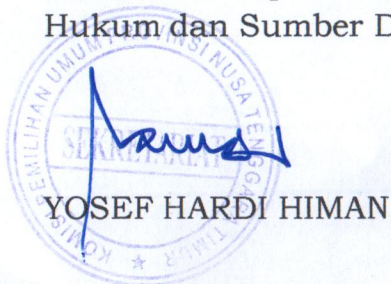 Hukum dan Sumber D
KOMISI PEMILIHAN UMUM PROVINSI NUSA TENGGARA TIMUR
SEKRETARIAT
YOSEF HARDI HIMAN